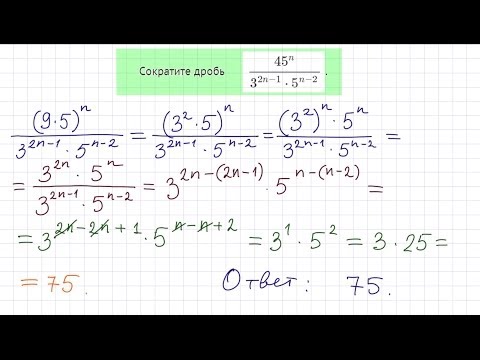 Сократите дробь 45ⁿ / (3²ⁿ⁻¹ · 5ⁿ⁻²) .
(9·5)ⁿ / (3²ⁿ⁻¹ · 5ⁿ⁻²) = (3²·5)ⁿ / (3²ⁿ⁻¹ · 5ⁿ⁻²) = (3²)ⁿ · 5ⁿ / (3²ⁿ⁻¹ · 5ⁿ⁻²) =
= 3²ⁿ · 5ⁿ / (3²ⁿ⁻¹ · 5ⁿ⁻²) = 3²ⁿ⁻⁽²ⁿ⁻¹⁾ · 5ⁿ⁻⁽ⁿ⁻²⁾ =
= 3²ⁿ⁻²ⁿ⁺¹ · 5ⁿ⁻ⁿ⁺² = 3¹ · 5² = 3 · 25 =
= 75. Ответ: 75.